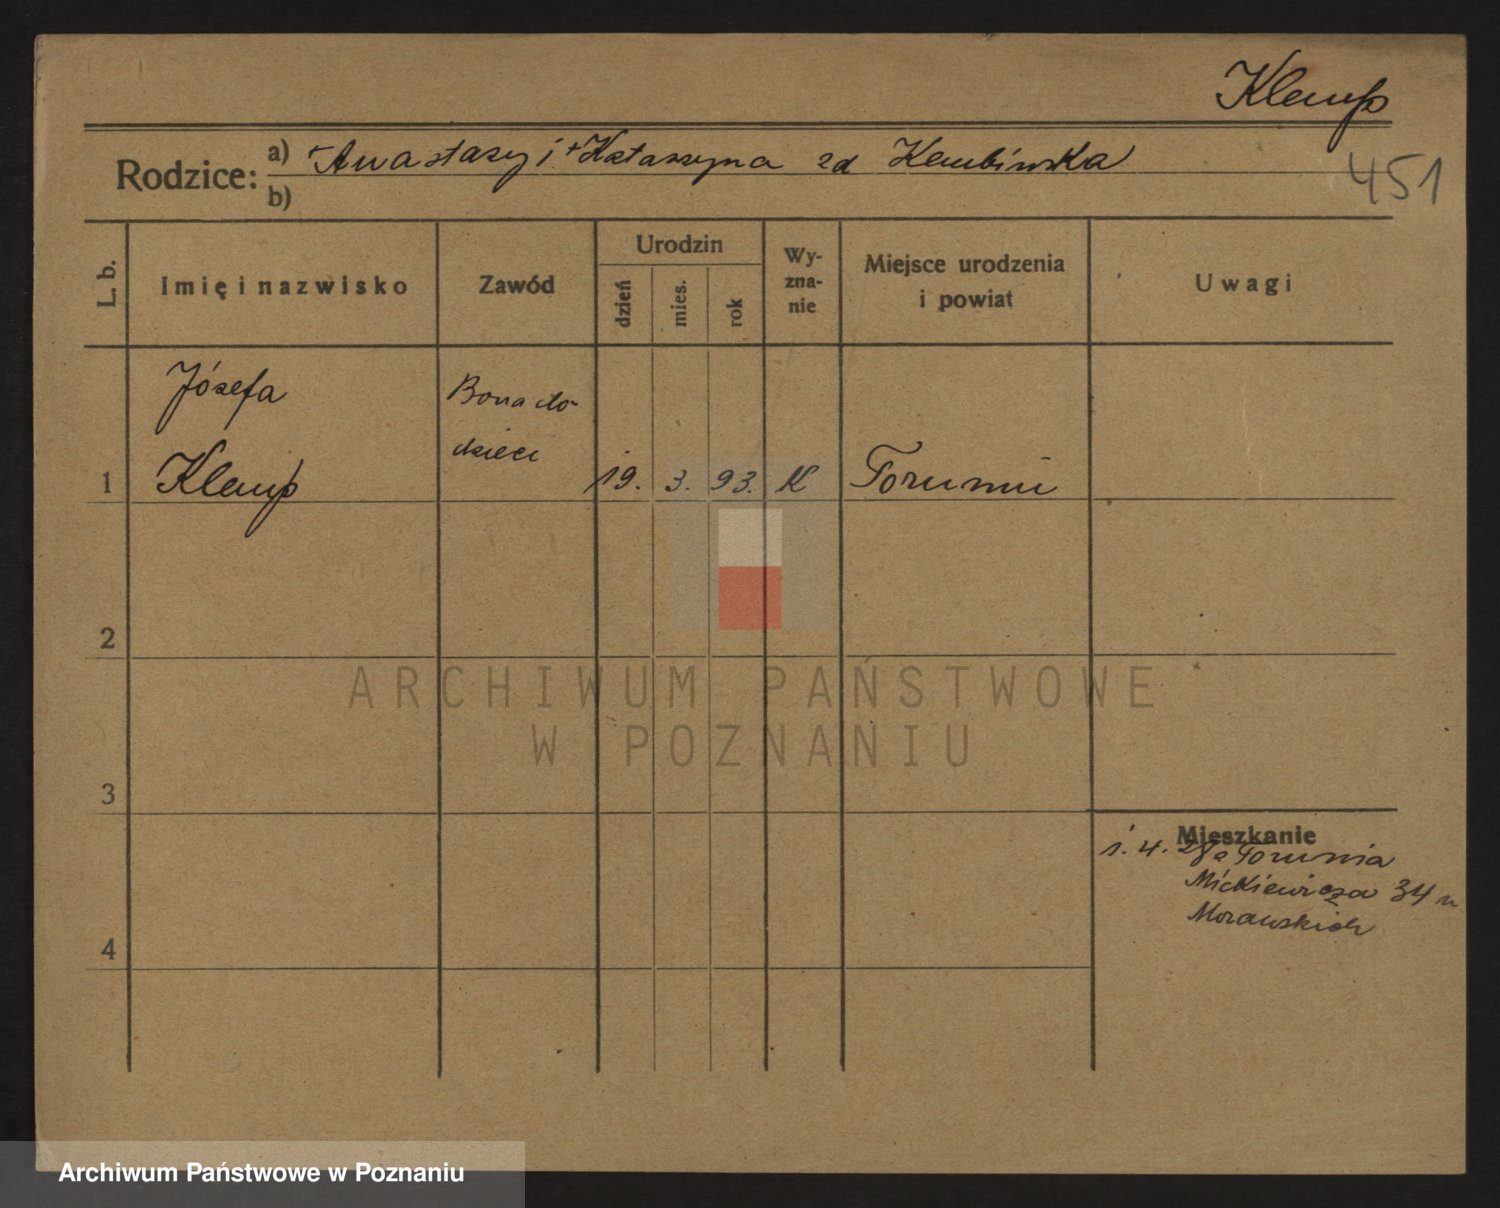 Klemp
451
Rodzice: a) + Anastazy i + Katarzyna zd Kembińska
b)
L. b.
Imię i nazwisko
Zawód
Urodzin
dzień
mies.
rok
Wy-
zna-
nie
Miejsce urodzenia
i powiat
Uwagi
Józefa
Klemp
Bona do
dzieci
1 19. 3. 93. K Toruniu
2
3
4
Mieszkanie
1. 4. 28 z Torunia
Mickiewicza 34 u
Morawskich
ARCHIWUM PAŃSTWOWE
W POZNANIU
Archiwum Państwowe w Poznaniu